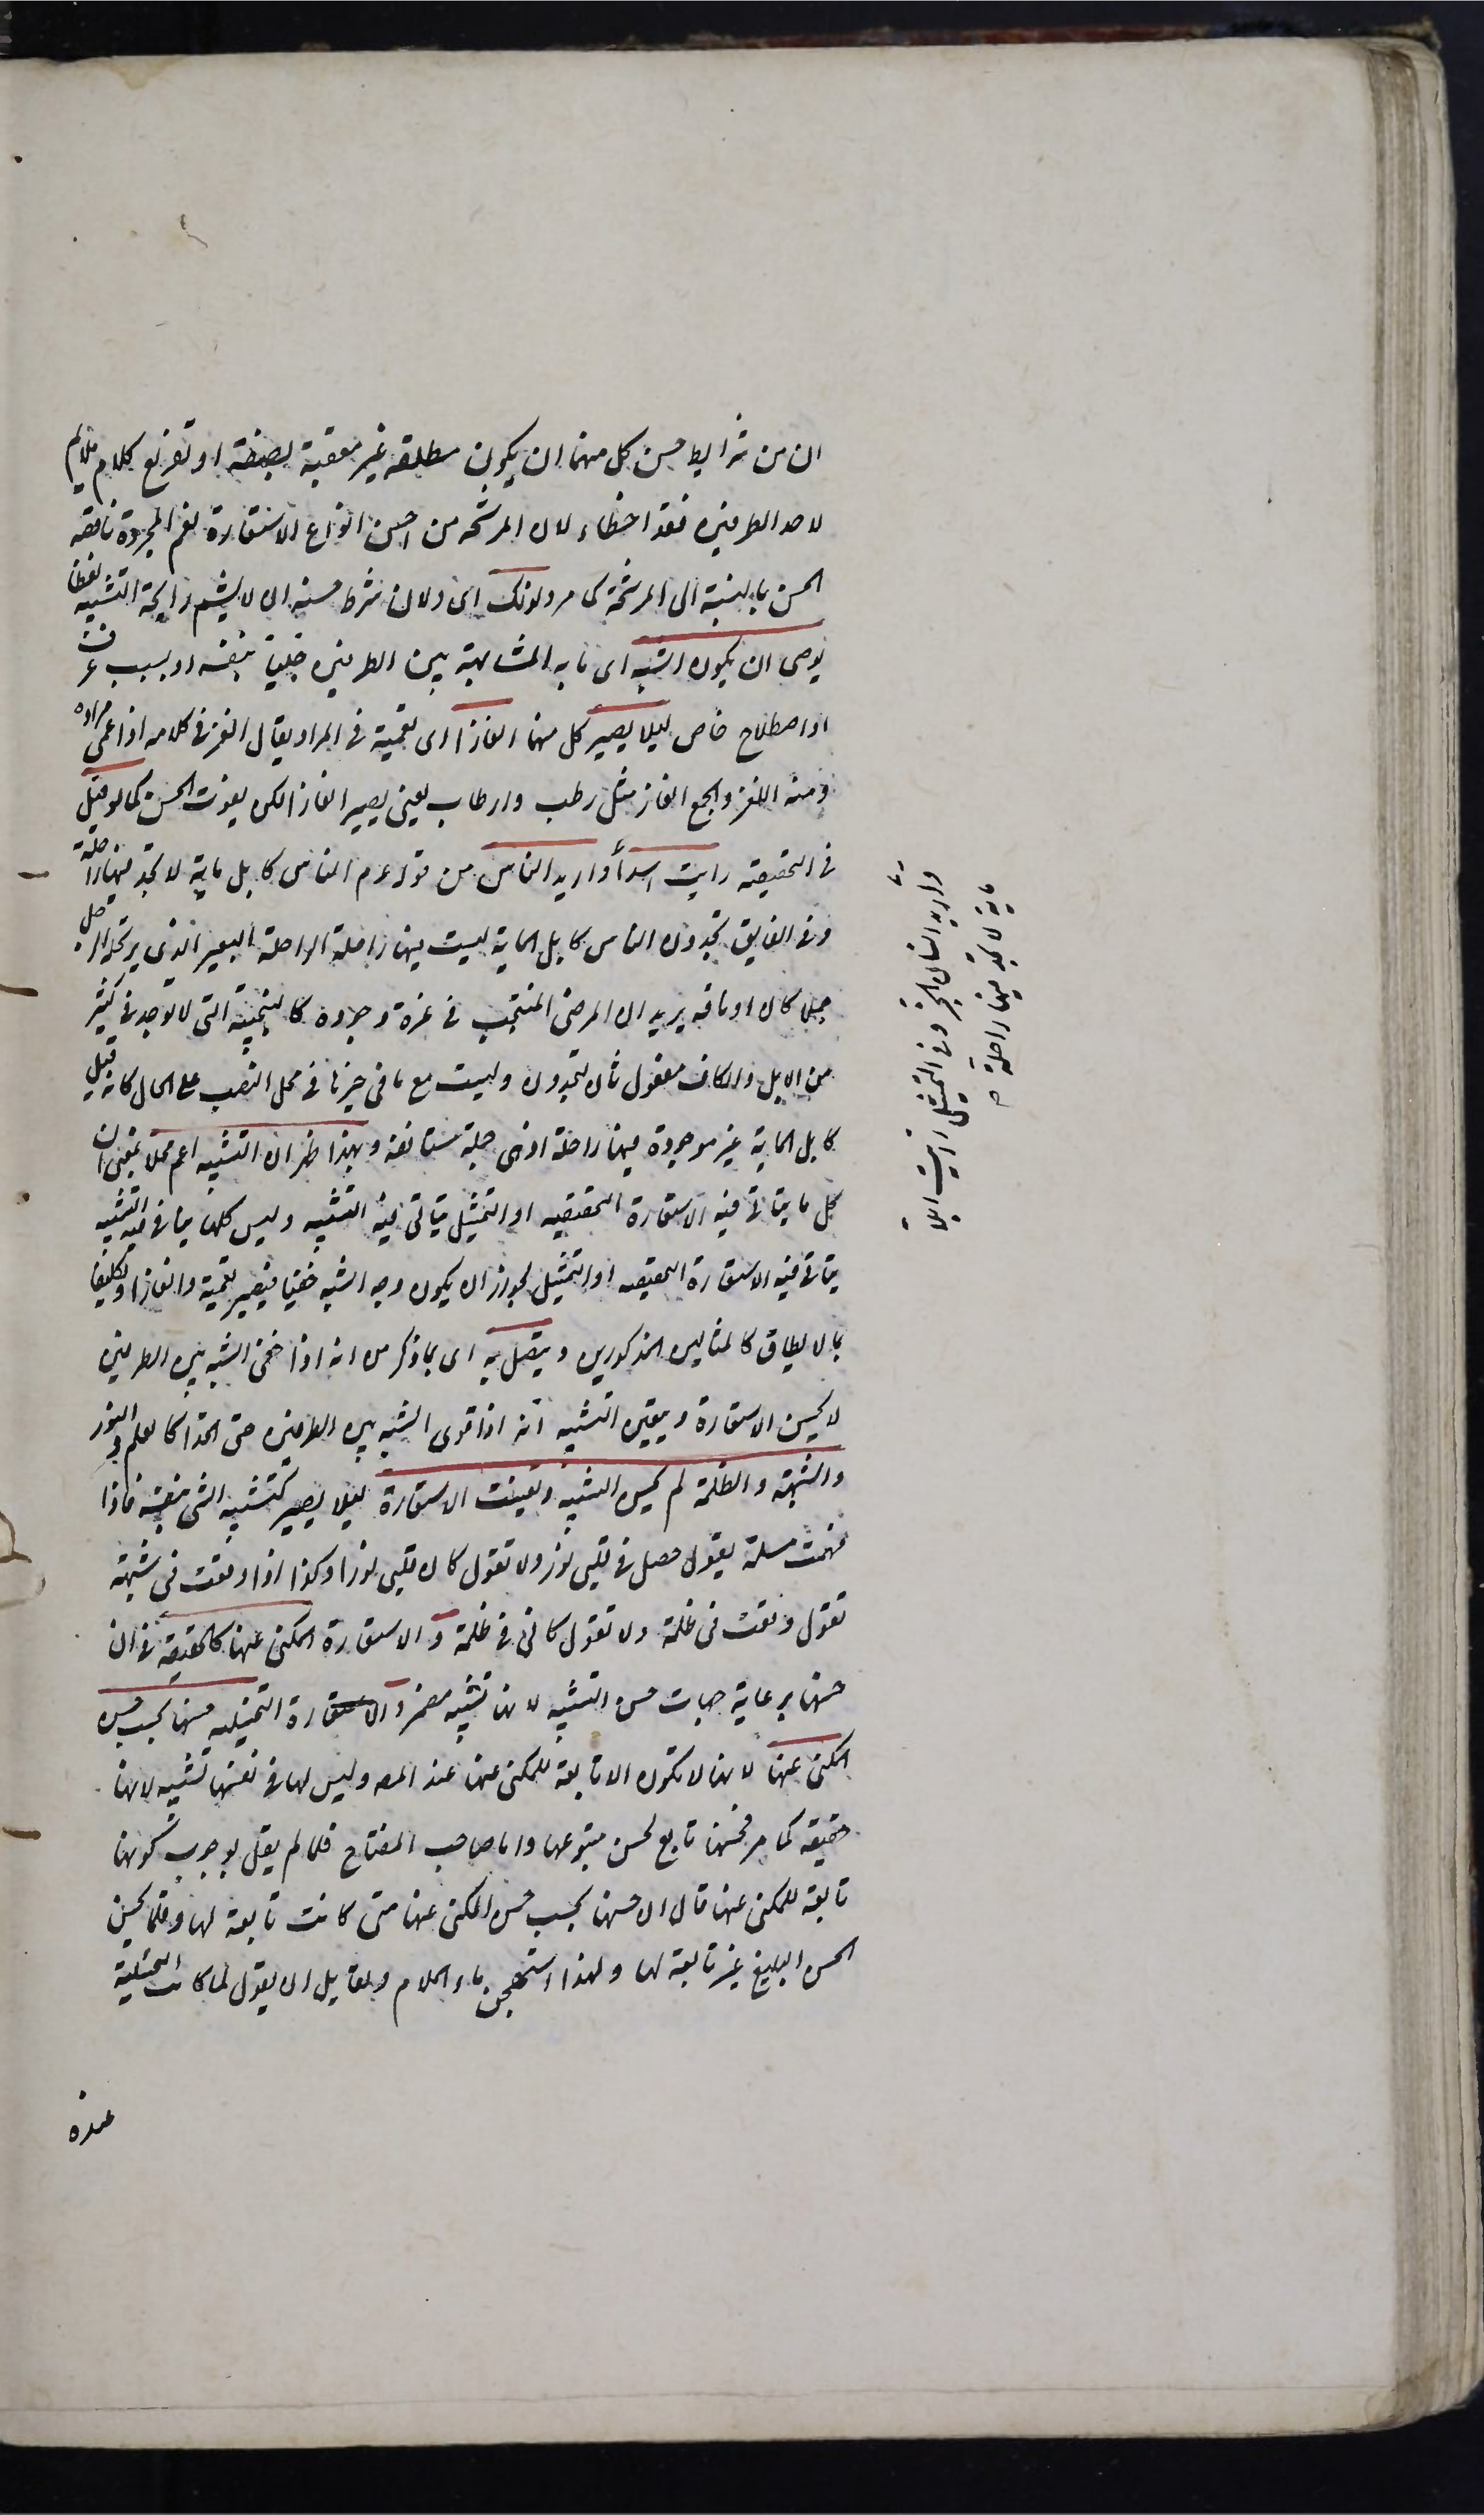 ان من شرايط حسن كل منهما ان يكون مطلقة غير معقبة بصفة او تفريع كلام ملايم
لاحد الطرفين فقد اخطاء لان المرشحة من احسن انواع الاستعارة نعم المجردة ناقصة
الحسن بالنسبة الى المرشحة كما مر ولذلك اى ولان شرط حسنه ان لا يشم رايحة التشبيه لفظا
يوصى ان يكون الشبه اى ما به المشابهة بين الطرفين جليا بنفسه او بسبب عرف
او اصطلاح خاص ليلا يصير كل منهما الغازا اى تعمية فى المراد يقال الغز فى كلامه اذا عمى مراده
ومنه اللغز والجمع الغاز مثل رطب وارطاب يعنى يصير الغازا لكن يفوت الحسن كما لو قيل
فى التحقيقية رايت اسدا واريد الناس من قوله عم الناس كابل ماية لا تجد فيها راحلة
وفى الفايق تجدون الناس كابل الماية ليست فيها راحلة الراحلة البعير الذى يرتحله الرجل
جملا كان او ناقة يريد ان المرضى المنتجب فى عزة وجوده كالنجيبة التى لا توجد فى كثير
من الابل والكاف مفعول ثان لتجدون وليست مع ما فى حيزها فى محل النصب على الحال كانه قيل
كابل الماية غير موجودة فيها راحلة او هى جملة مستانفة وبهذا ظهر ان التشبيه اعم محلا بمعنى ان
كل ما يتاتى فيه الاستعارة التحقيقية او التمثيل يتاتى فيه التشبيه وليس كلما يتاتى فيه التشبيه
يتاتى فيه الاستعارة التحقيقية او التمثيل لجواز ان يكون وجه الشبه خفيا فيصير تعمية والغازا وتكليفا
بما لا يطاق كالمثالين المذكورين ويتصل به اى بما ذكر من انه اذا خفى الشبه بين الطرفين
لا يحسن الاستعارة ويتعين التشبيه انه اذا قوى الشبه بين الطرفين حتى اتحدا كالعلم والنور
والشبهة والظلمة لم يحسن التشبيه وتعينت الاستعارة ليلا يصير كتشبيه الشى بنفسه فاذا
فهمت مسلة يقول حصل فى قلبى نور ولا تقول كان قلبى نورا وكذا اذا وقعت فى شبهة
تقول وقعت فى ظلمة ولا تقول كانى فى ظلمة والاستعارة المكنى عنها كالتحقيقية فى ان
حسنها برعاية جهات حسن التشبيه لانها تشبيه مضمر والاستعارة التخييلية حسنها بحسب حسن
المكنى عنها لانها لا تكون الا تابعة للمكنى عنها عند المصه وليس لها فى نفسها تشبيه لانها
حقيقة كما مر فحسنها تابع لحسن متبوعها واما صاحب المفتاح فلما لم يقل بوجوب كونها
تابعة للمكنى عنها قال ان حسنها بحسب حسن المكنى عنها متى كانت تابعة لها وقلما تحسن
الحسن البليغ غير تابعة لها ولهذا استهجن ماء الملام ولقايل ان يقول لما كانت التخييلية
عنده
واريد انسان ابخر وفى التمثيل رايت ابلا
ماية لا تجد فيها راحلة